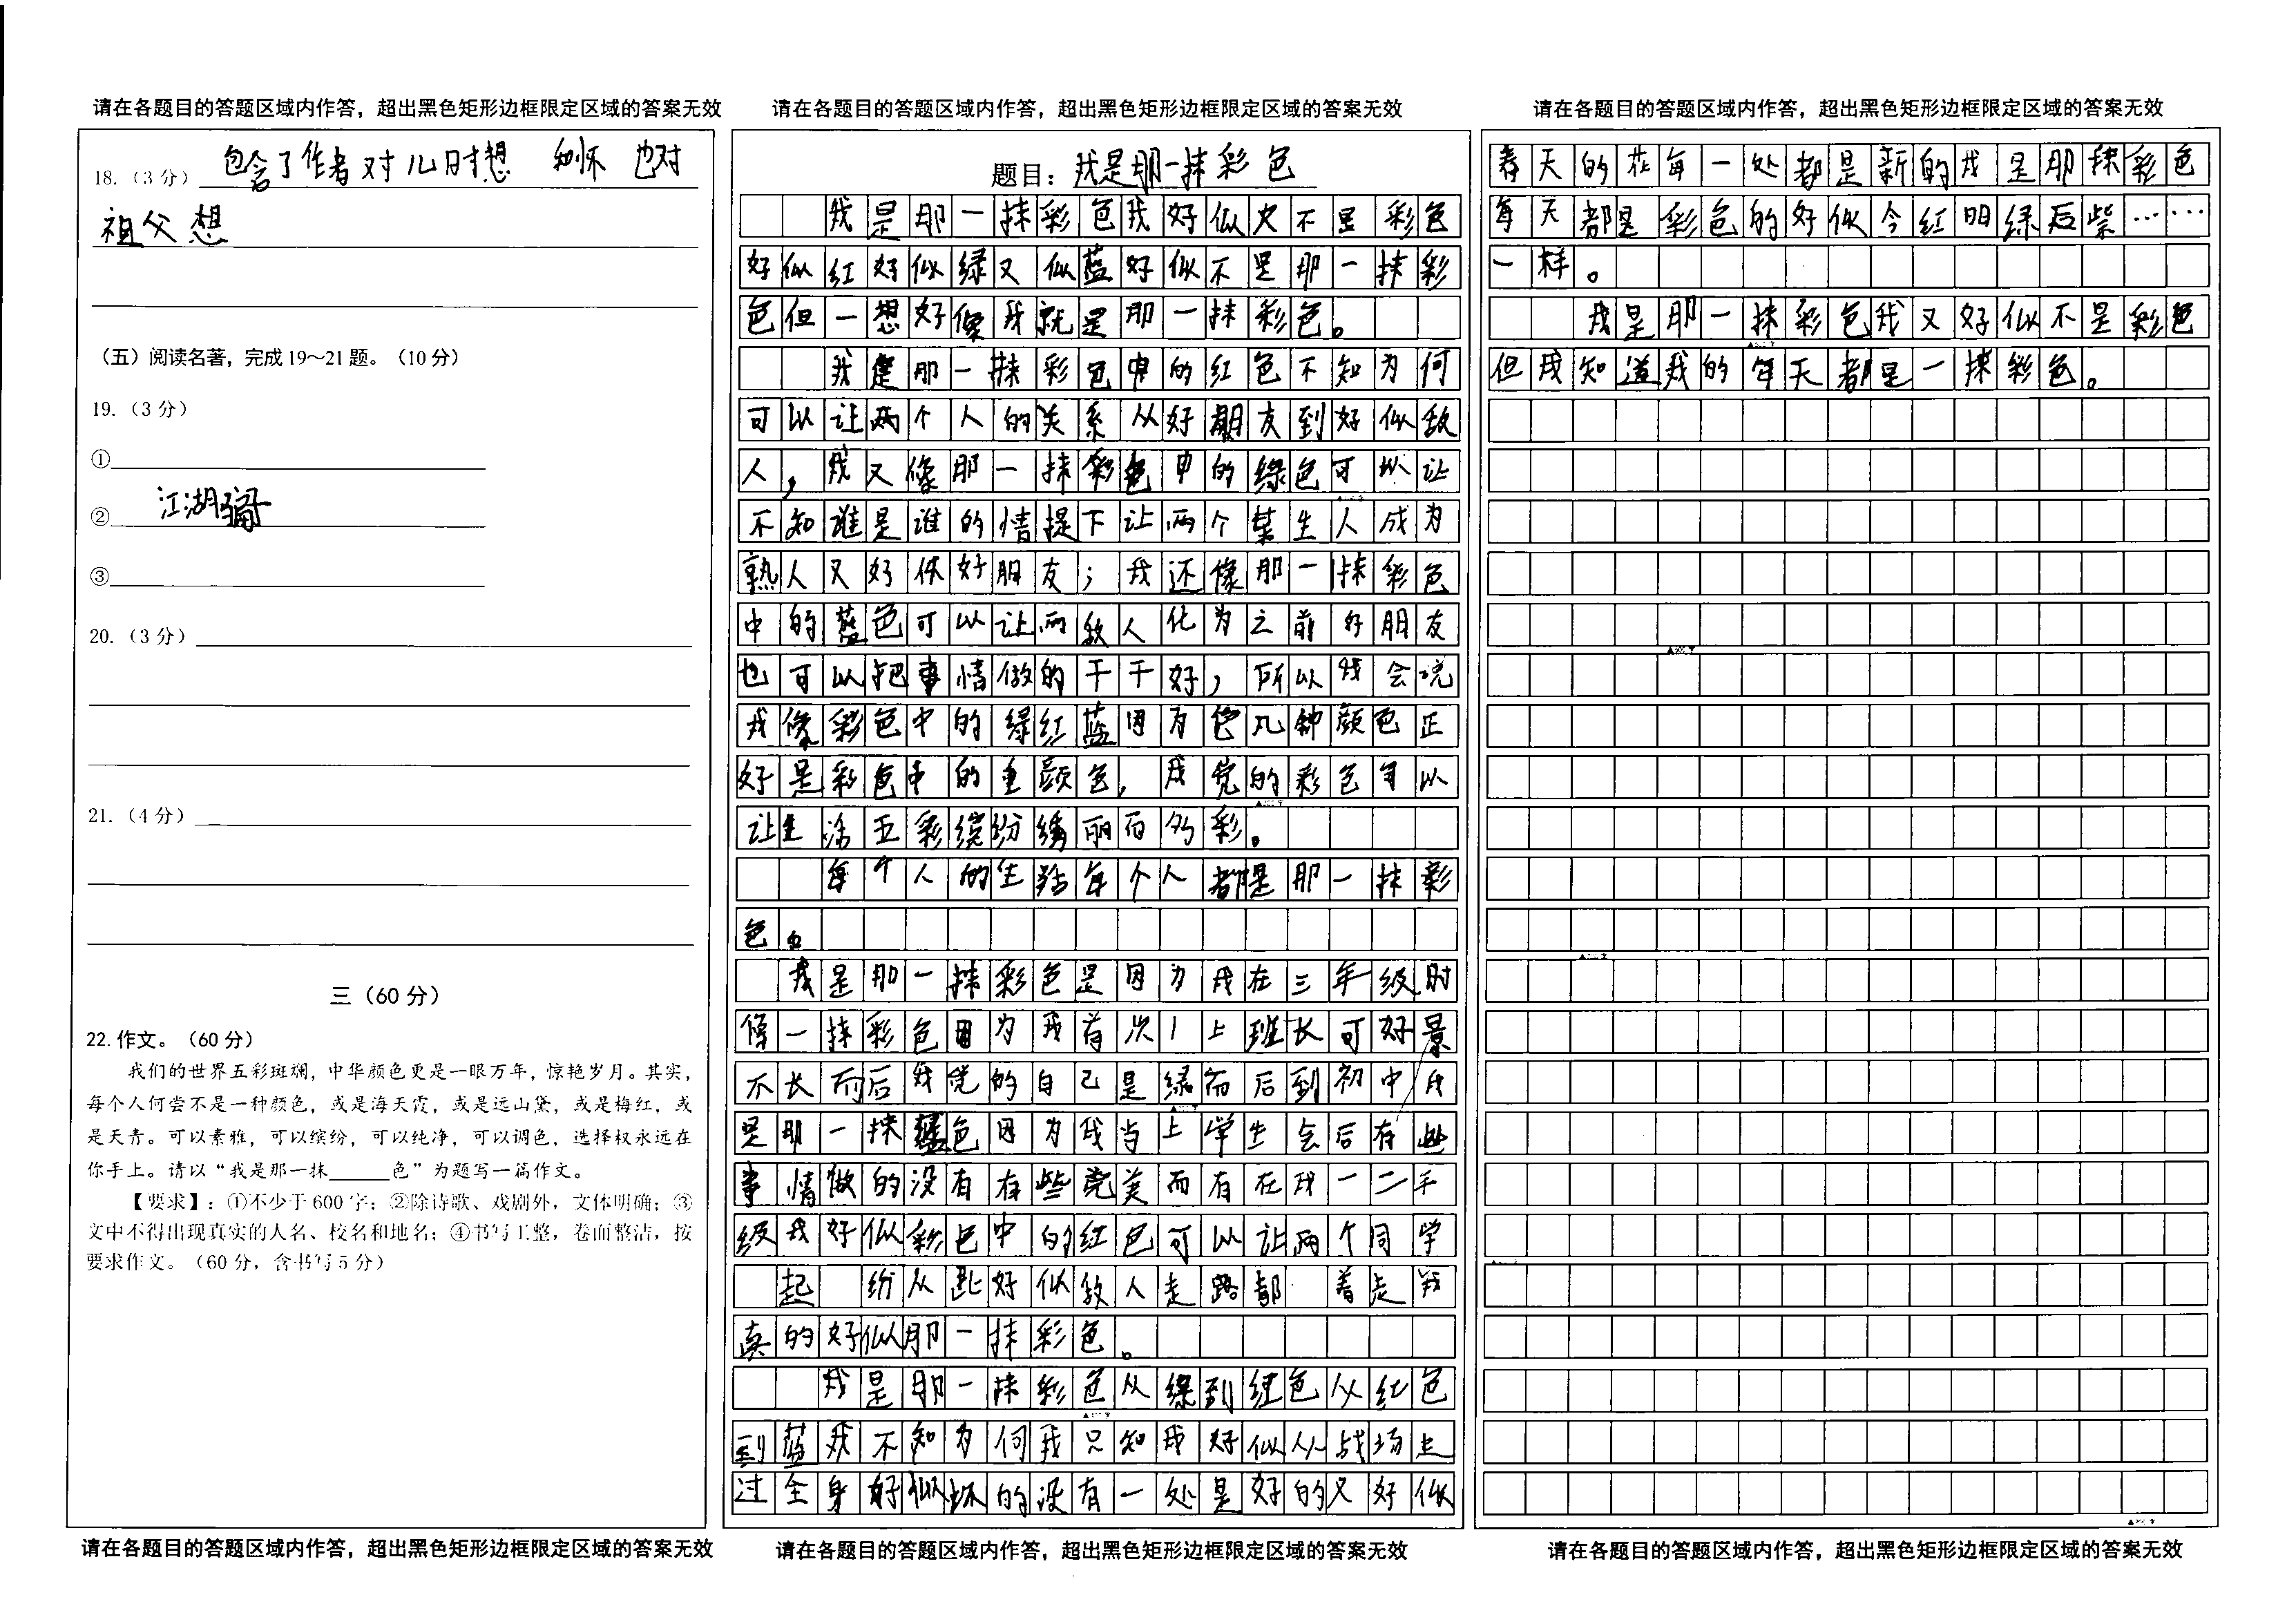 请在各题目的答题区域内作答，超出黑色矩形边框限定区域的答案无效
18.（3分）包含了作者对儿时想 和怀 也对
祖父想
（五）阅读名著，完成19～21题。（10分）
19.（3分）
①
②江湖骗子
③
20.（3分）
21.（4分）
三（60分）
22.作文。（60分）
我们的世界五彩斑斓，中华颜色更是一眼万年，惊艳岁月。其实，
每个人何尝不是一种颜色，或是海天霞，或是远山黛，或是梅红，或
是天青。可以素雅，可以缤纷，可以纯净，可以调色，选择权永远在
你手上。请以“我是那一抹______色”为题写一篇作文。
【要求】：①不少于600字；②除诗歌、戏剧外，文体明确；③
文中不得出现真实的人名、校名和地名；④书写工整，卷面整洁，按
要求作文。（60分，含书写5分）
请在各题目的答题区域内作答，超出黑色矩形边框限定区域的答案无效
请在各题目的答题区域内作答，超出黑色矩形边框限定区域的答案无效
题目：我是那一抹彩色
我是那一抹彩色我好似又不是彩色
好似红好似绿又似蓝好似不是那一抹彩
色但一想好像我就是那一抹彩色。
我是那一抹彩色中的红色不知为何
可以让两个人的关系从好朋友到好似敌
人，我又像那一抹彩色中的绿色可以让
不知谁是谁的情提下让两个某生人成为
熟人又好似好朋友；我还像那一抹彩色
中的蓝色可以让两敌人化为之前好朋友
也可以把事情做的干干好，所以我会说
我像彩色中的绿红蓝因为它几种颜色正
好是彩色中的重颜色，我觉的彩色可以
让生活五彩缤纷绣丽百多彩。
每个人的生活每个人都是那一抹彩
色。
我是那一抹彩色是因为我在三年级时
像一抹彩色因为我有次上班长可好景
不长而后我觉的自己是绿而后到初中我
是那一抹蓝色因为我当上学生会后有些
事情做的没有有些完美而有在我一二年
级我好似彩色中的红色可以让两个同学
起 纷从此好似敌人走路都 着走我
真的好似那一抹彩色。
我是那一抹彩色从绿到红色从红色
到蓝我不知为何我只知我好似从战场走
过全身好似坏的没有一处是好的又好似
请在各题目的答题区域内作答，超出黑色矩形边框限定区域的答案无效
请在各题目的答题区域内作答，超出黑色矩形边框限定区域的答案无效
春天的花每一处都是新的我是那抹彩色
每天都是彩色的好似今红明绿后紫……
一样。
我是那一抹彩色我又好似不是彩色
但我知道我的每天都是一抹彩色。
请在各题目的答题区域内作答，超出黑色矩形边框限定区域的答案无效